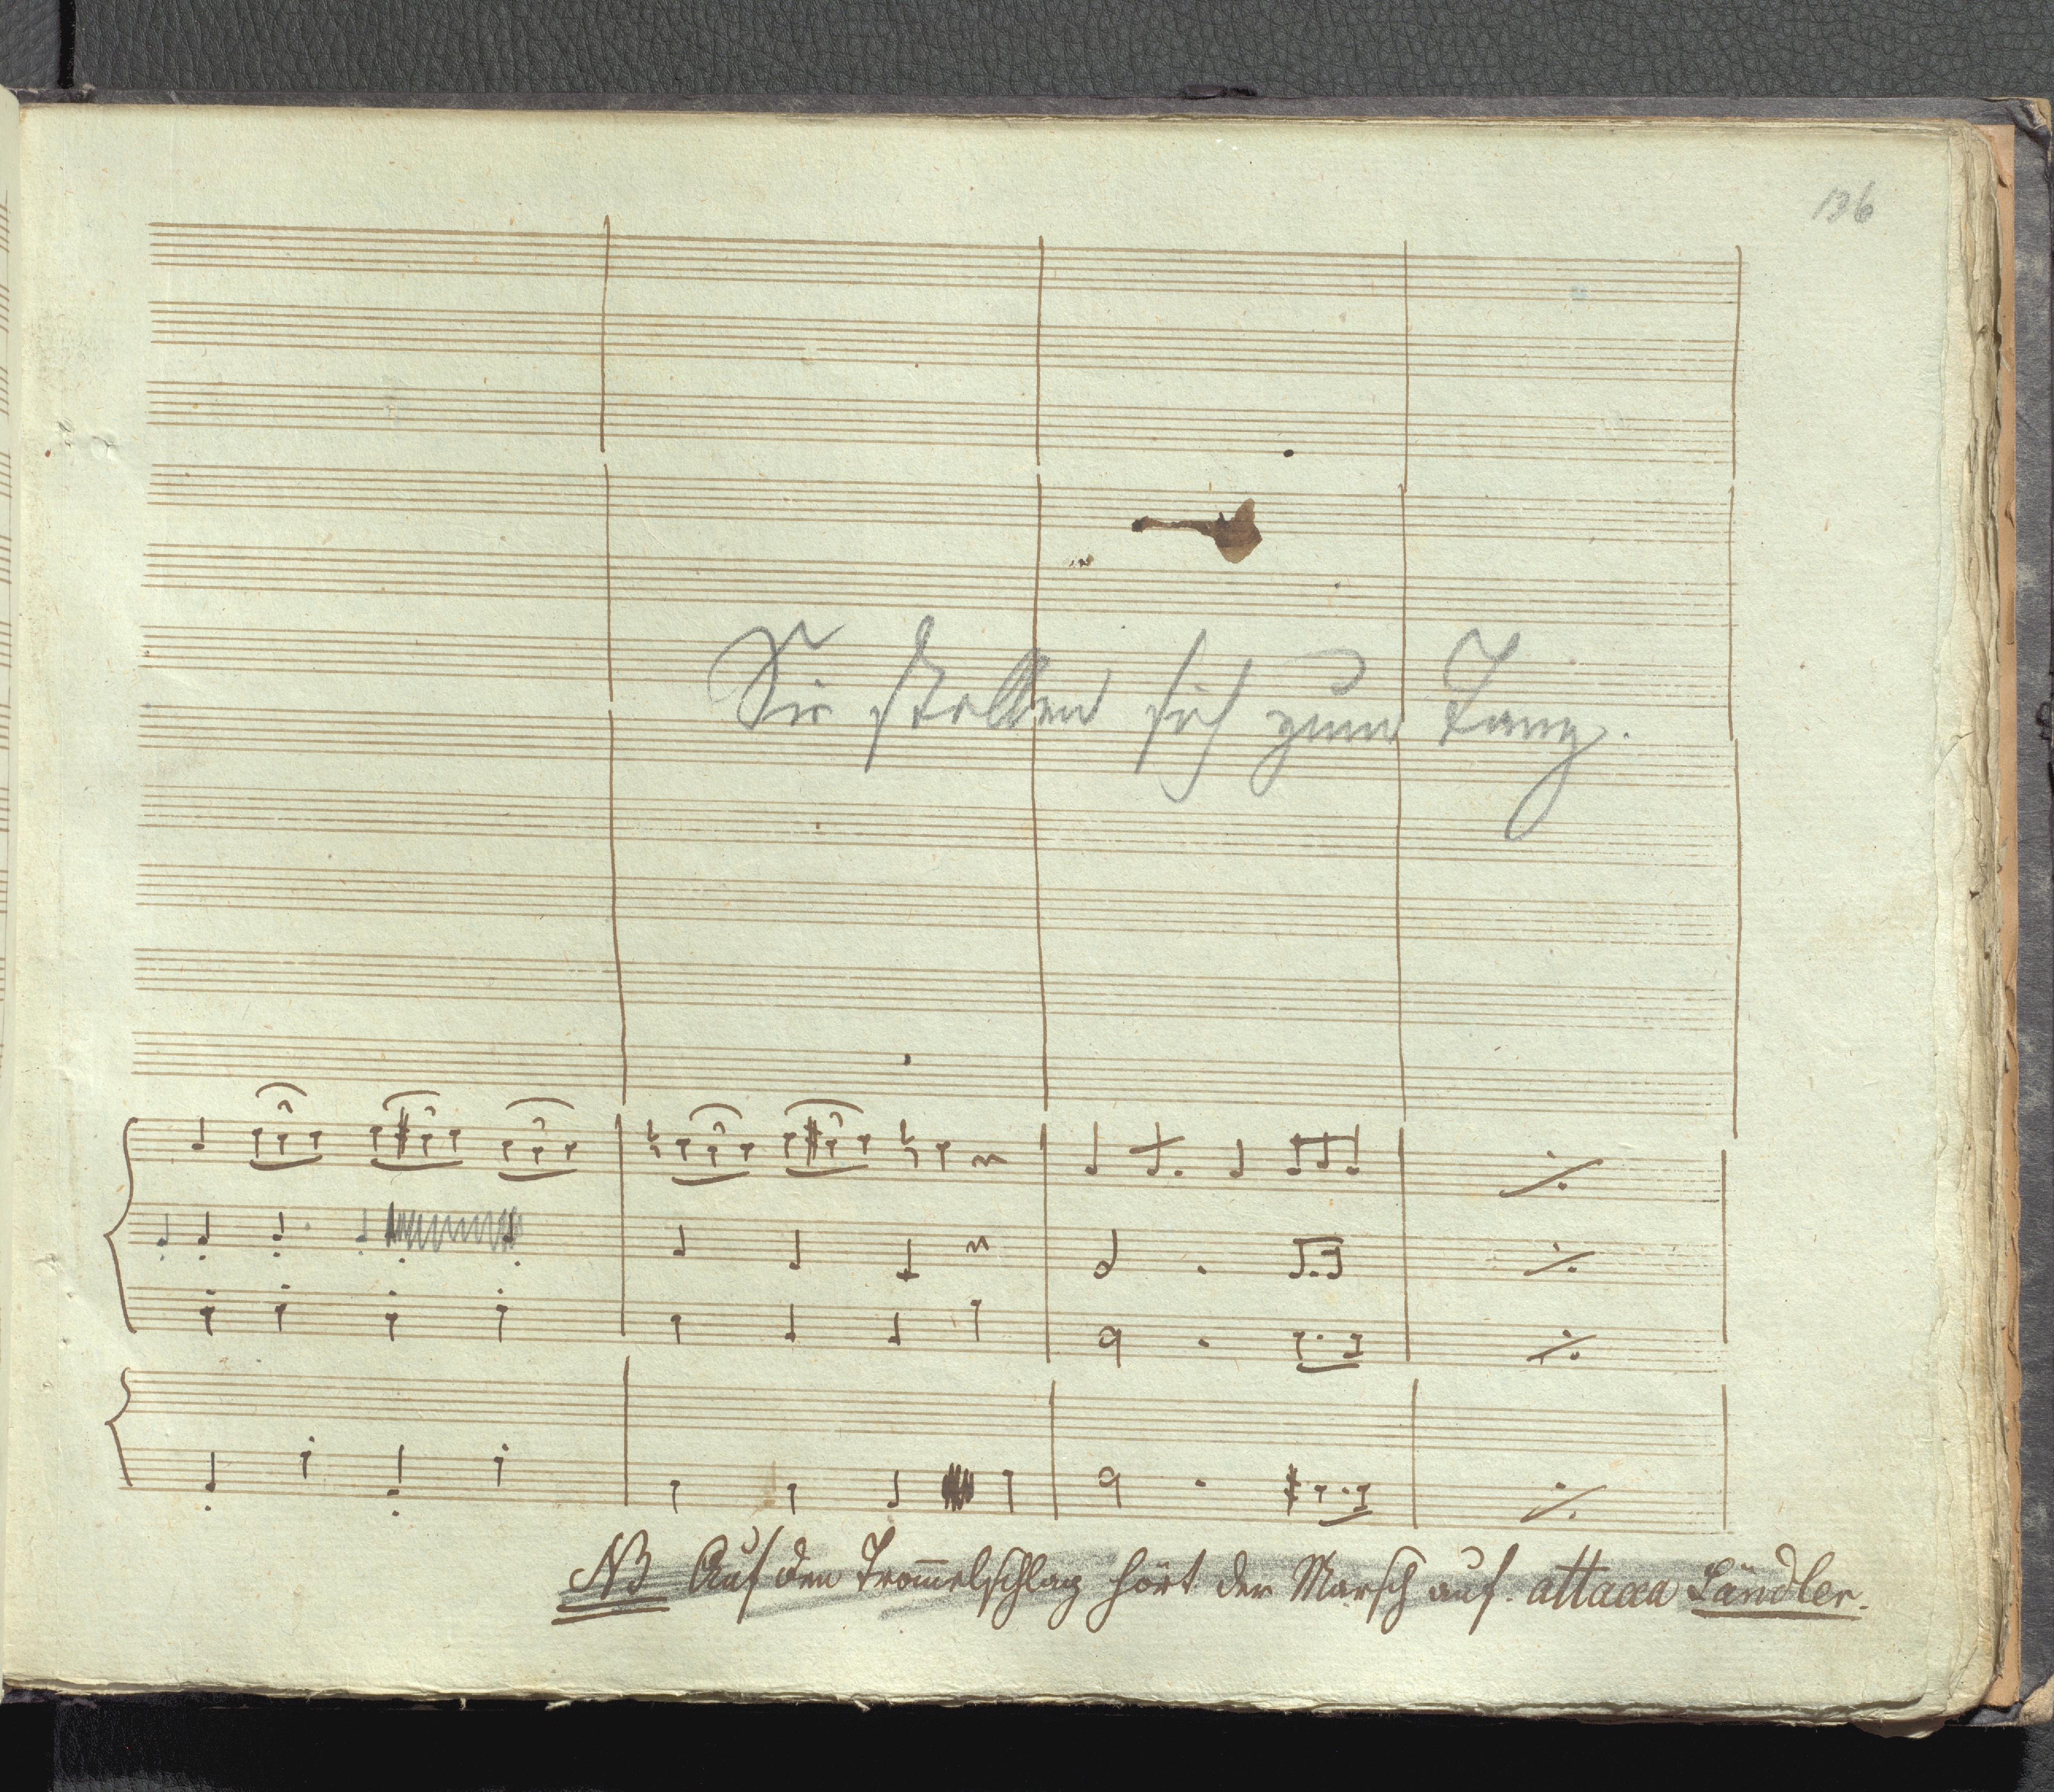 136
Sie stellen sich zum Tanz.
NB Auf den Trom̄elschlag hört der Marsch auf. attacca Ländler.